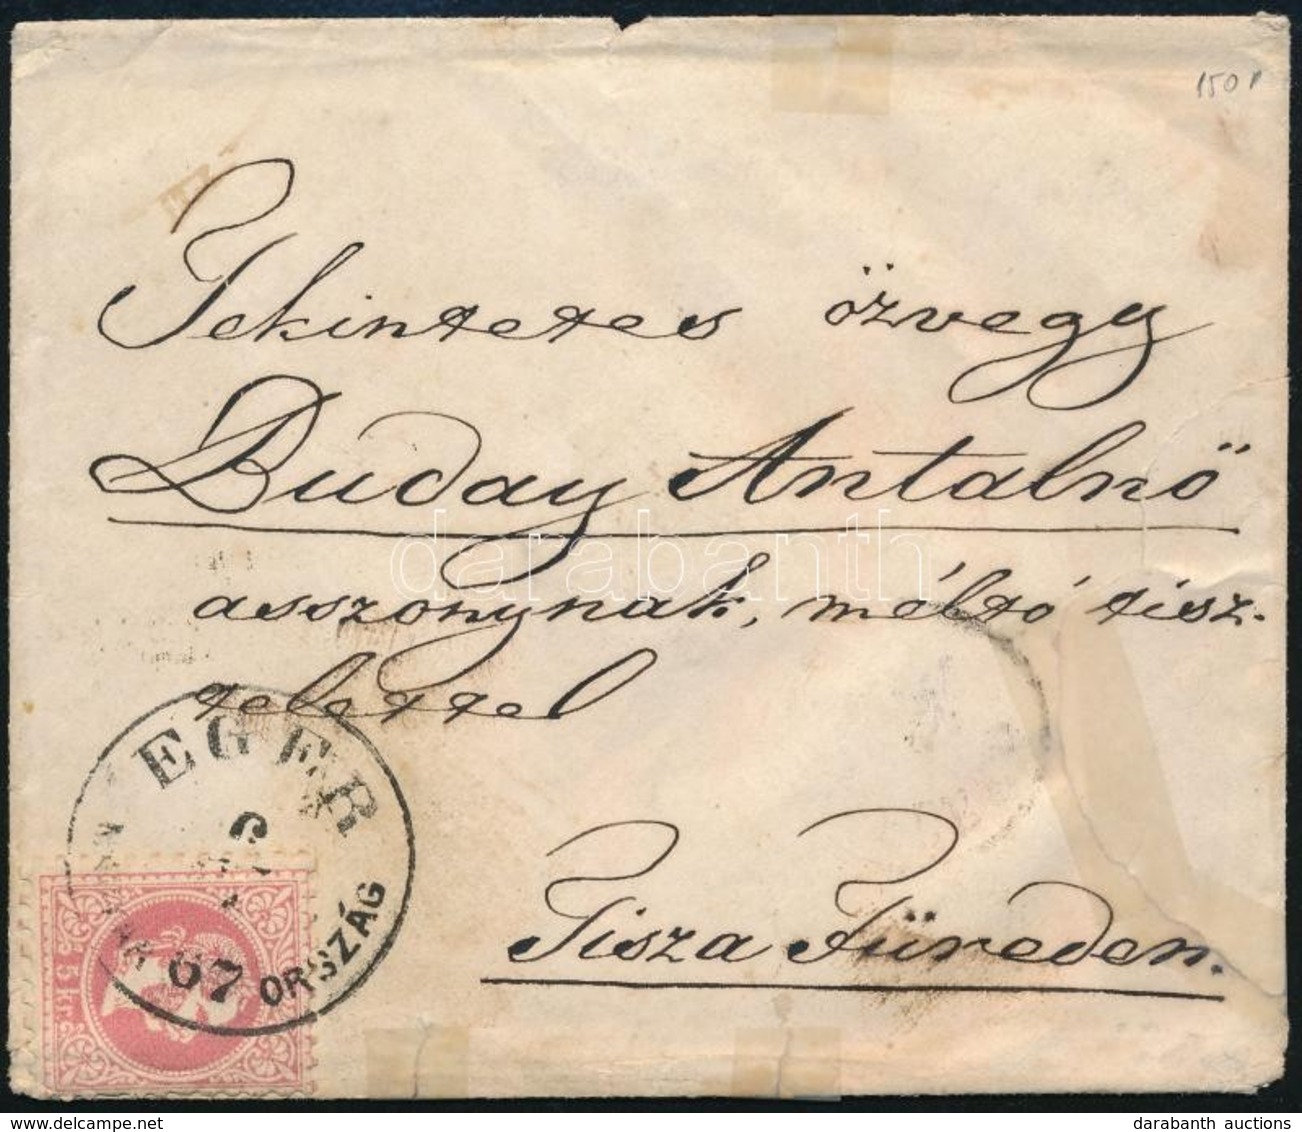 150 P
Tekintetes özvegy
Buday Antalnő
asszonynak, méltó tisz-
telettel
Tisza Füreden.
EGER
67
ORSZÁG
5 kr
darabanth
darabanth auctions